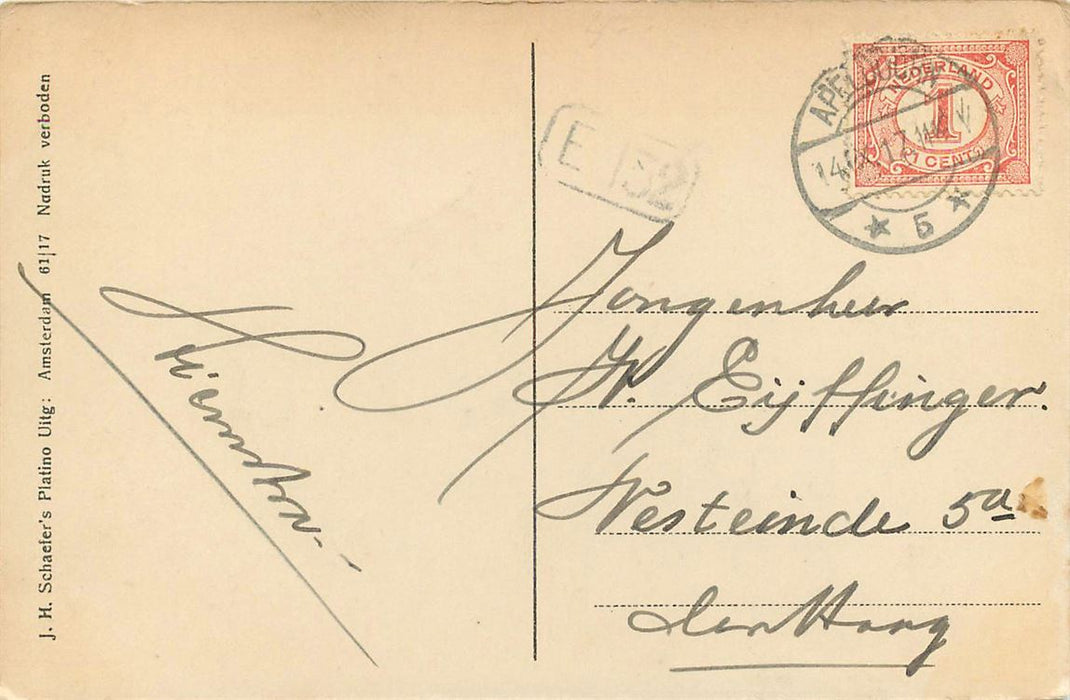 J. H. Schaefer's Platino Uitg: Amsterdam 61|17 Nadruk verboden
E 52
APELDOORN
5
NEDERLAND
1
1 CENT
Jongenheer
W. Eijffinger.
Westeinde 5a
den Haag